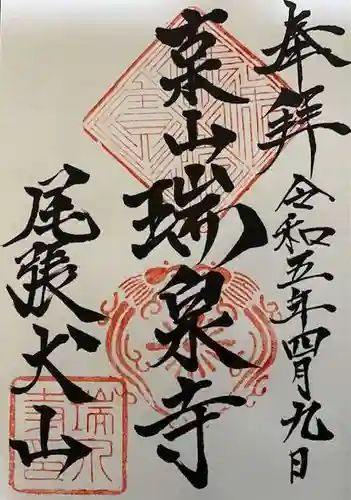 奉拝
令和五年四月九日
山瑞泉寺
尾張犬山